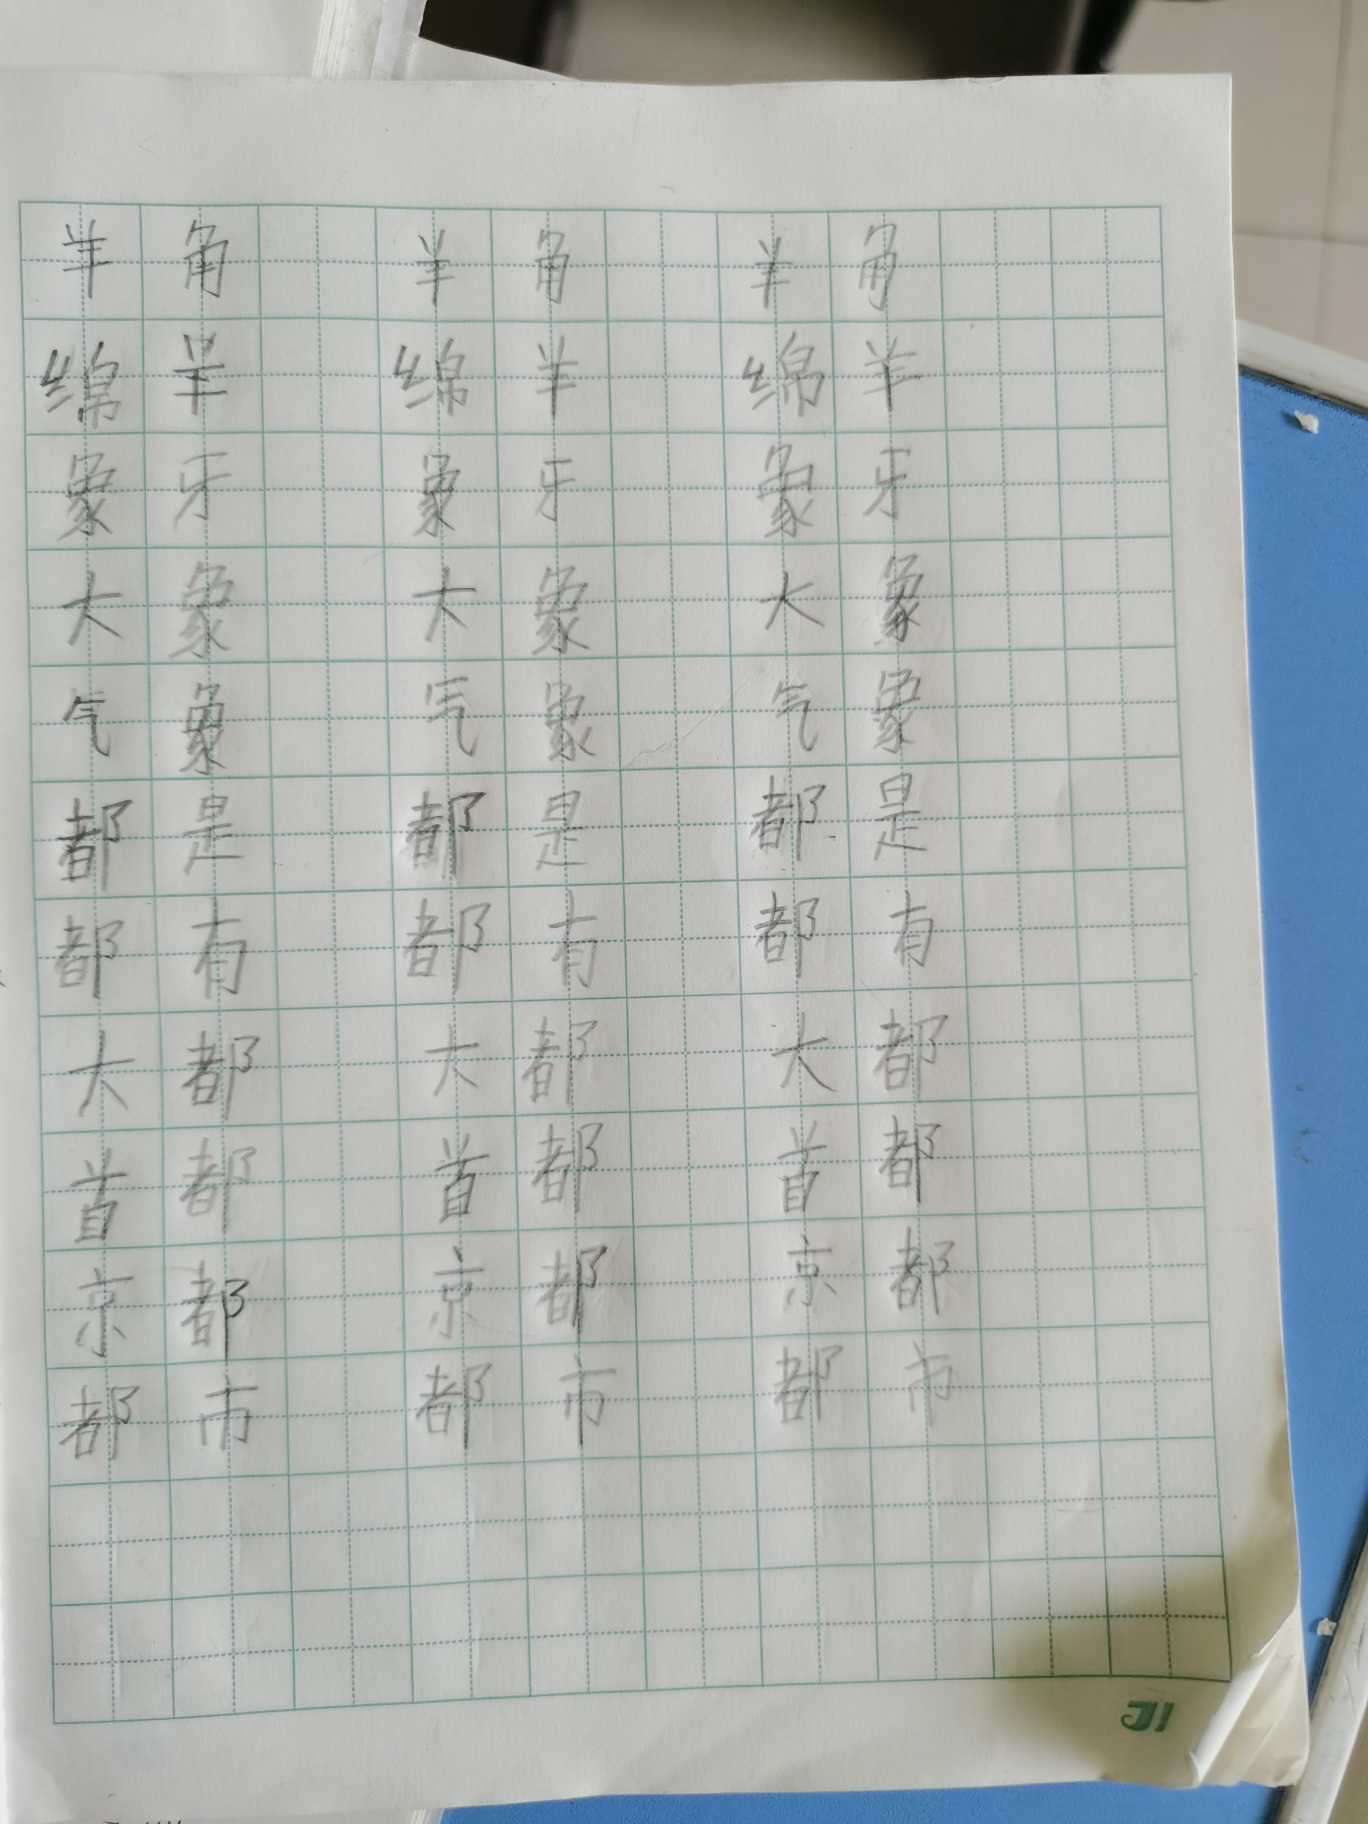 羊角 羊角 羊角
绵羊 绵羊 绵羊
象牙 象牙 象牙
大象 大象 大象
气象 气象 气象
都是 都是 都是
都有 都有 都有
大都 大都 大都
首都 首都 首都
京都 京都 京都
都市 都市 都市